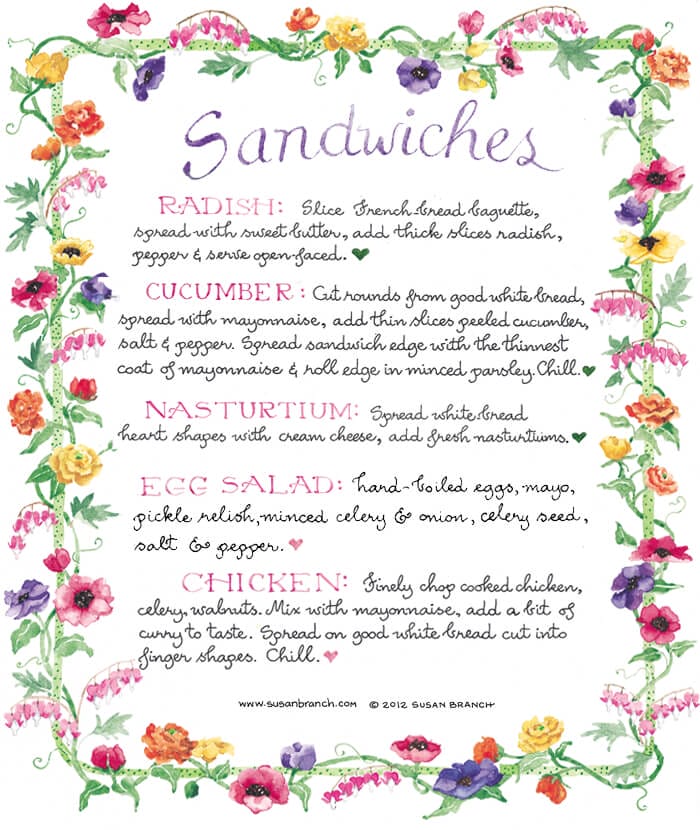 Sandwiches
RADISH: Slice French bread baguette,
spread with sweet butter, add thick slices radish,
pepper & serve open-faced.
CUCUMBER: Cut rounds from good white bread,
spread with mayonnaise, add thin slices peeled cucumber,
salt & pepper. Spread sandwich edge with the thinnest
coat of mayonnaise & roll edge in minced parsley. Chill.
NASTURTIUM: Spread white bread
heart shapes with cream cheese, add fresh nasturtiums.
EGG SALAD: hard-boiled eggs, mayo,
pickle relish, minced celery & onion, celery seed,
salt & pepper.
CHICKEN: Finely chop cooked chicken,
celery, walnuts. Mix with mayonnaise, add a bit of
curry to taste. Spread on good white bread cut into
finger shapes. Chill.
www.susanbranch.com © 2012 SUSAN BRANCH